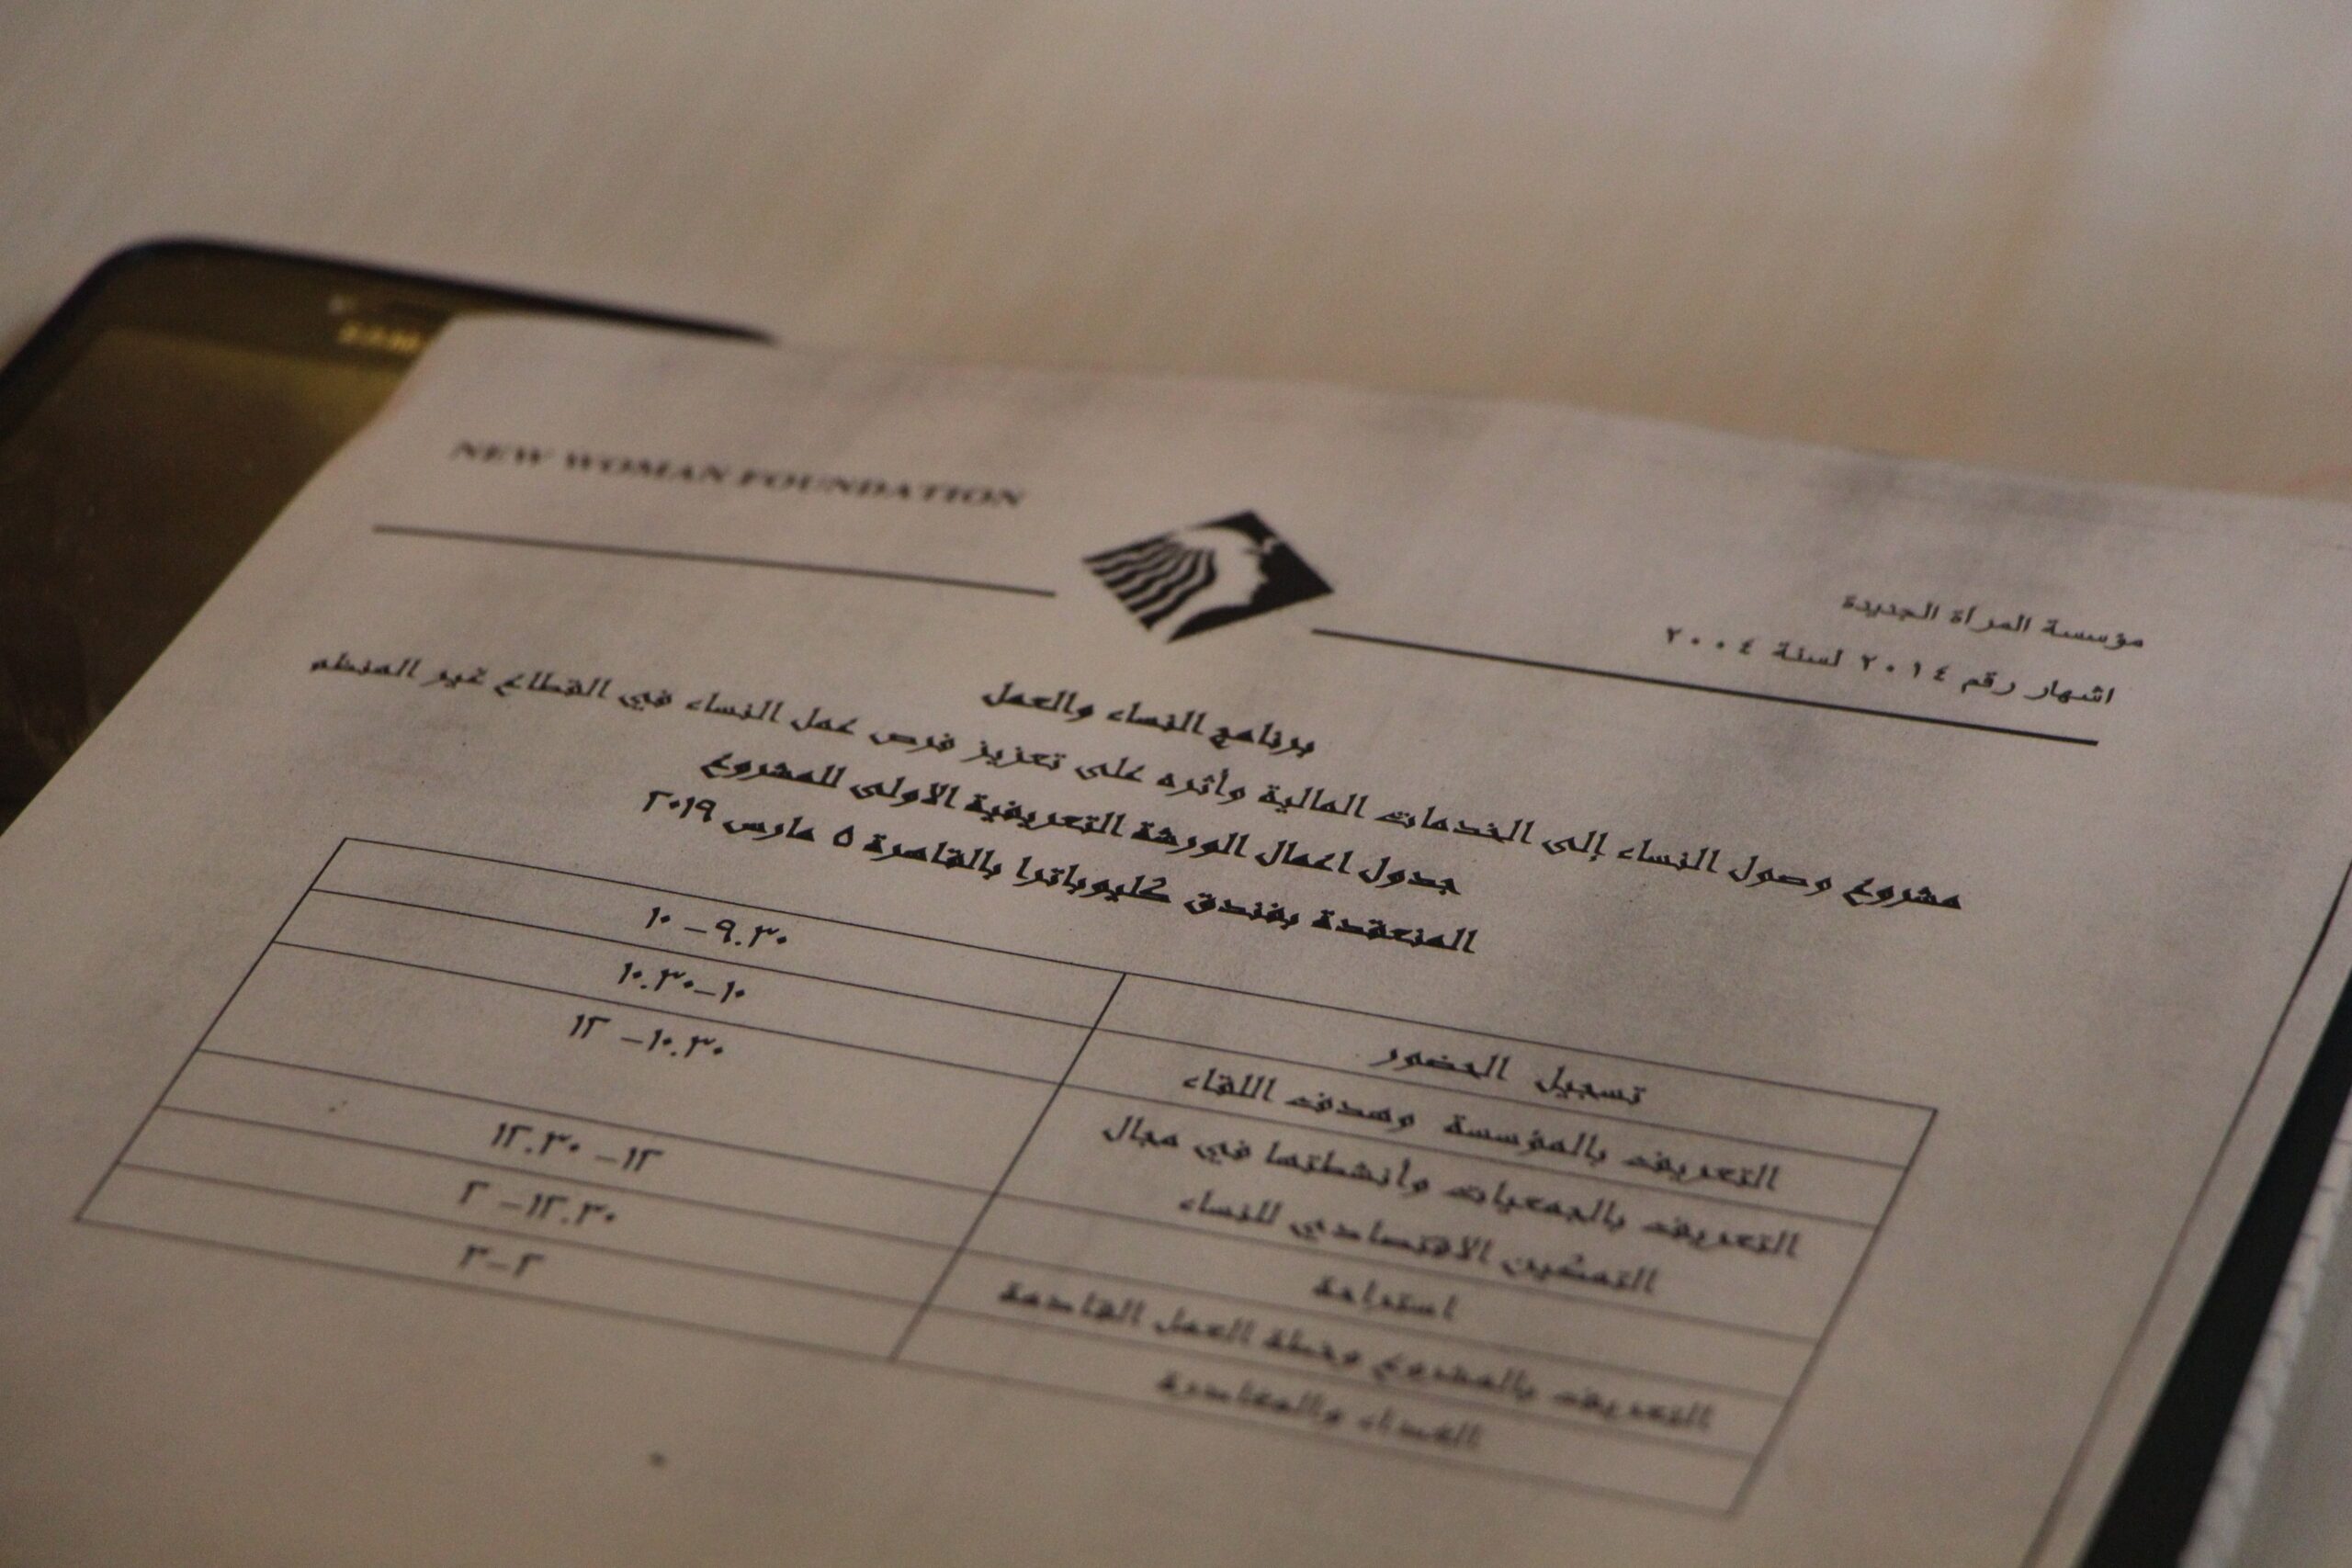 NEW WOMAN FOUNDATION
مؤسسة المرأة الجديدة
اشهار رقم ٢٠١٤ لسنة ٢٠٠٤
برنامج النساء والعمل
مشروع وصول النساء إلى الخدمات المالية وأثره على تعزيز فرص عمل النساء في القطاع غير المنظم
جدول اعمال الورشة التعريفية الاولى للمشروع
المنعقدة بفندق كليوباترا بالقاهرة ٥ مارس ٢٠١٩
تسجيل الحضور ٩.٣٠ – ١٠
التعريف بالمؤسسة وهدف اللقاء ١٠–١٠.٣٠
التعريف بالجمعيات وأنشطتها في مجال ١٠.٣٠– ١٢
التمكين الاقتصادي للنساء
استراحة ١٢– ١٢.٣٠
التعريف بالمشروع وخطة العمل القادمة ١٢.٣٠– ٢
الغداء والمغادرة ٢–٣